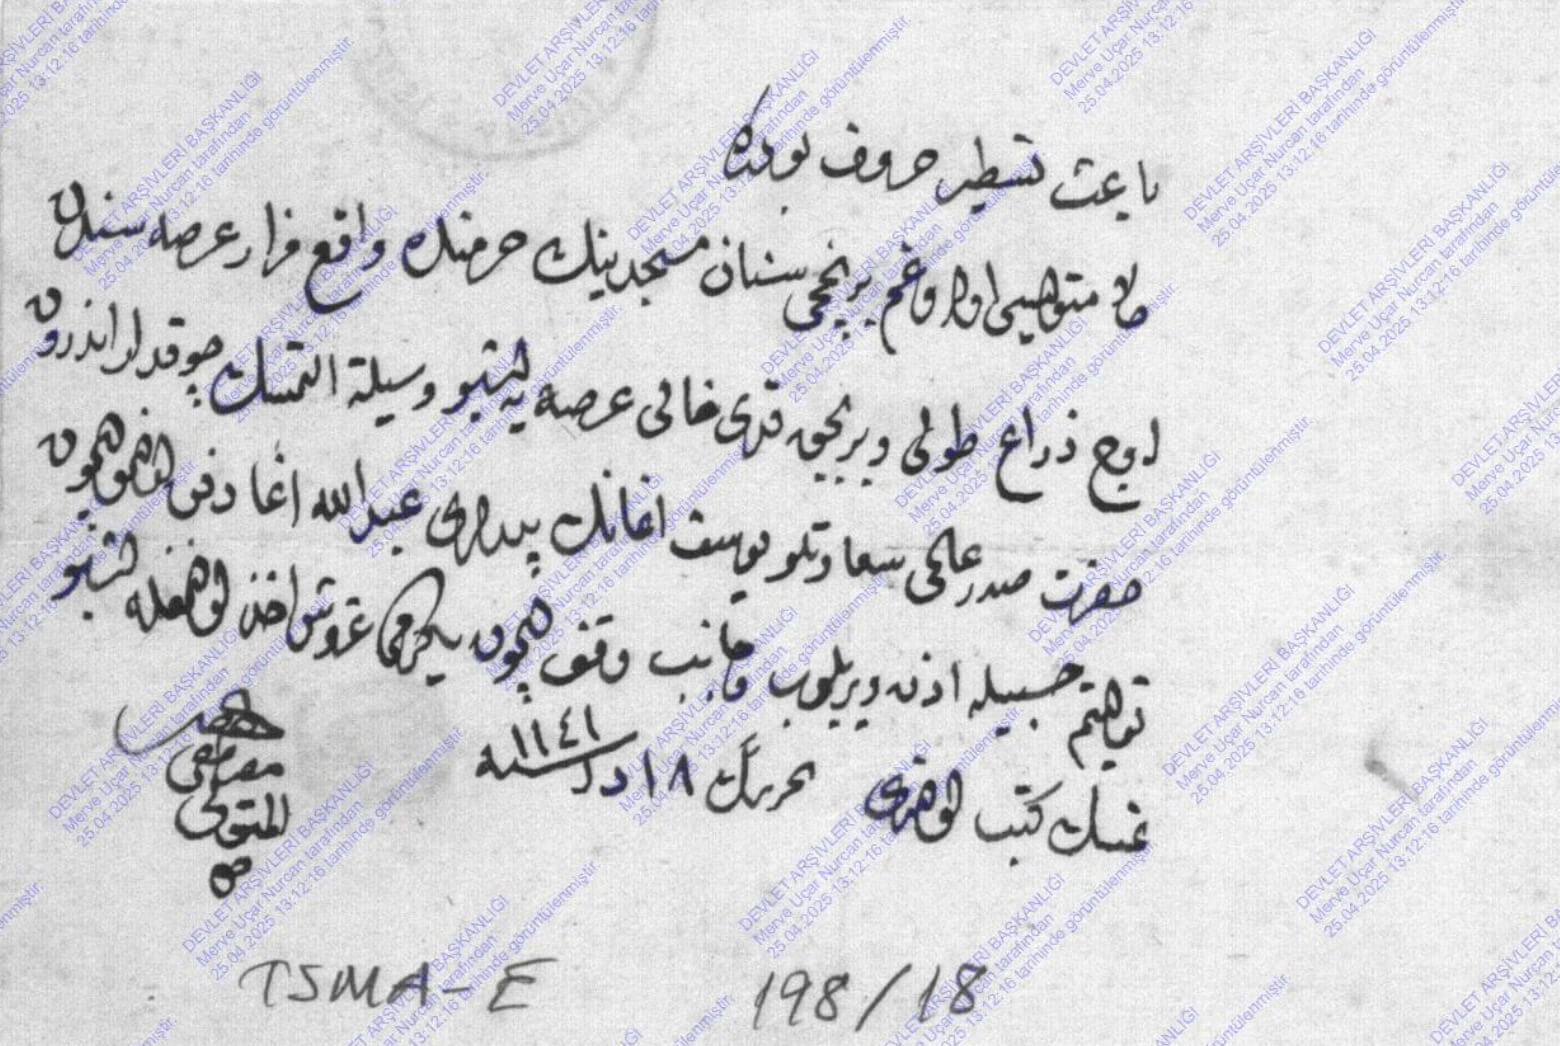 باعث تسطير حروف بودركه
حالا متوليسى اولدوغم برنجى سنان مسجدينك حرمنده واقع مزار عرصه سندن
اوچ ذراع طولى وبربچق قدرى خالى عرصه يه اشبو وسيلة التمسك چوقدار اندرون
حضرت صدر عالى سعادتلو يوسف اغانك پدرلرى عبد الله اغا دفن اولنمق ايچون
توليتم حسبيله اذن ويريلوب وجانب وقف ايچون يكرمى غروش اخذ اولنمغله اشبو
تمسك كتب اولندى تحريرًا ١٨ سنه ١١٤١
مصطفى
المتولى
TSMA-E 198/18
DEVLET ARŞİVLERİ BAŞKANLIĞI
Merve Uçar Nurcan tarafından
25.04.2025 13:12:16 tarihinde görüntülenmiştir.